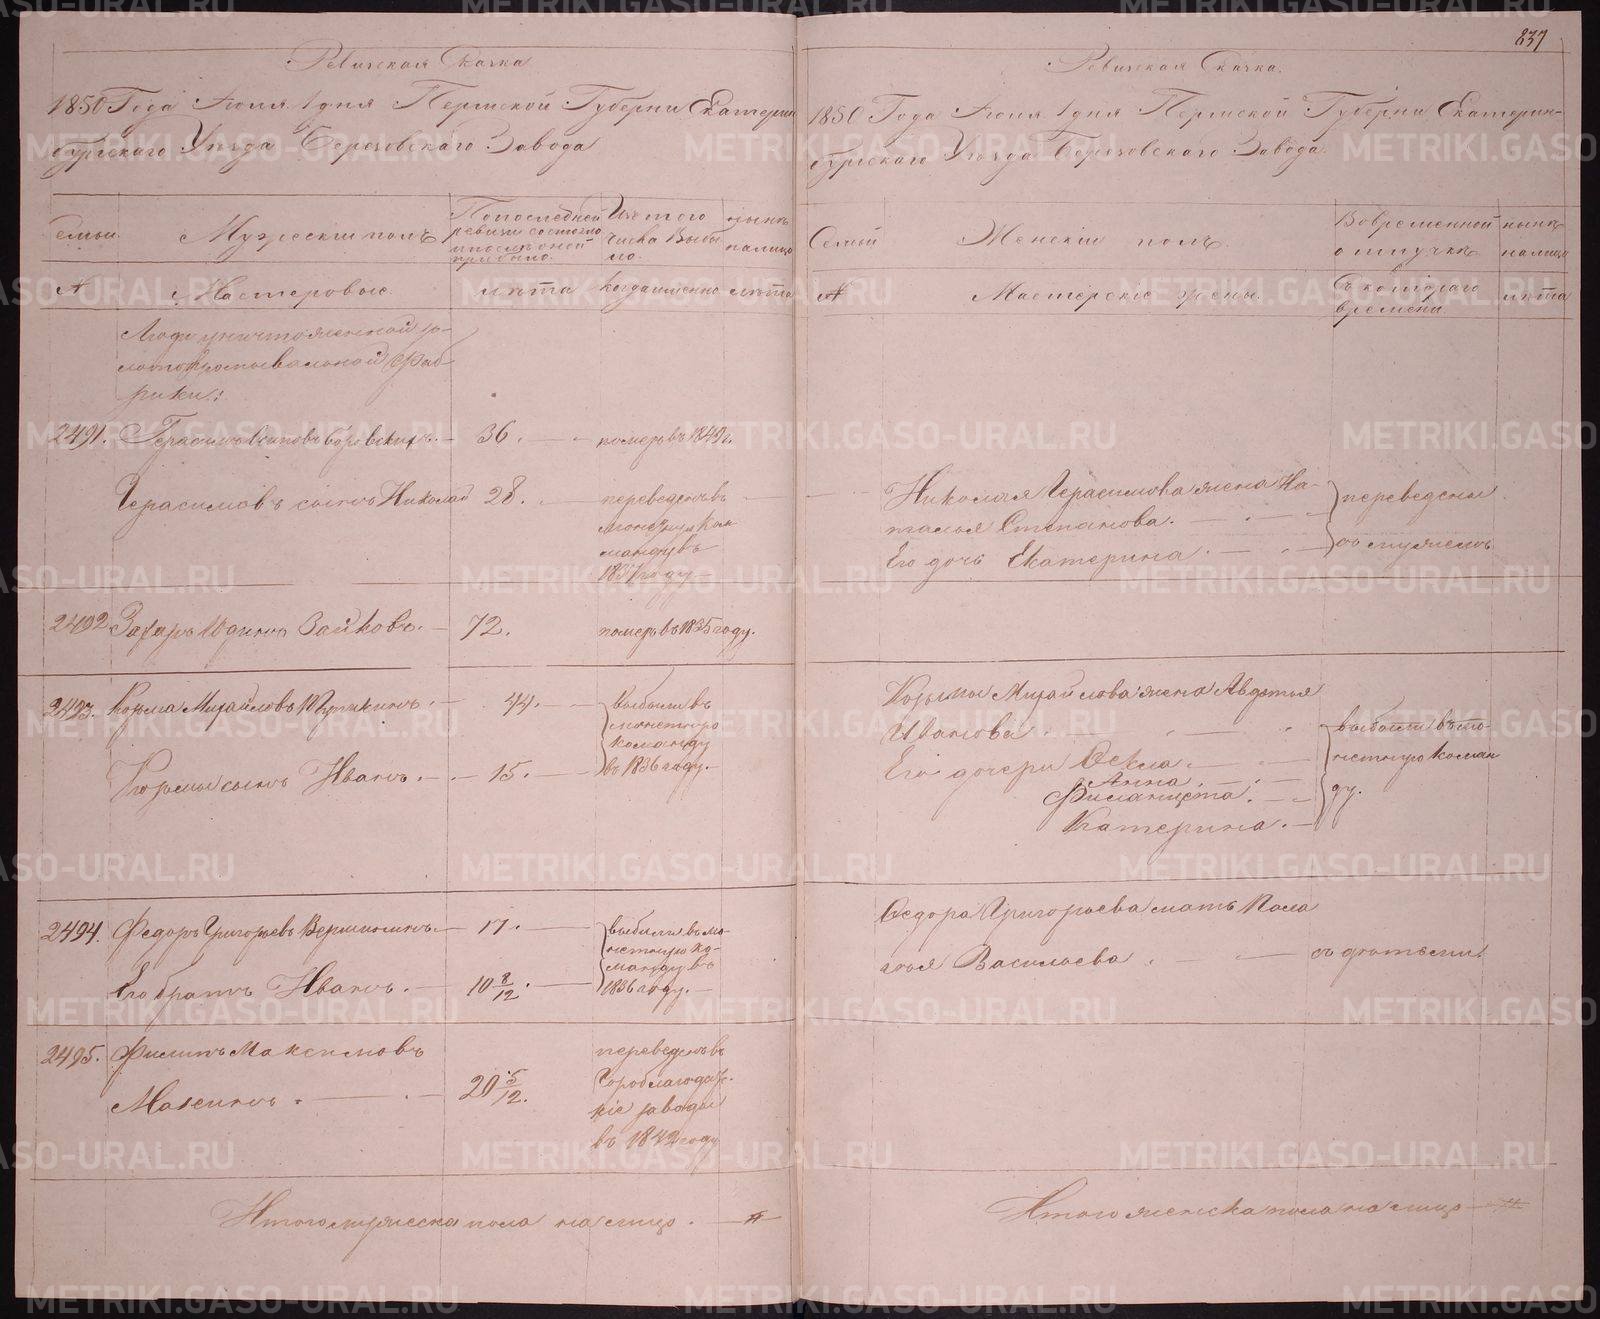 Ревизская Сказка
1850 Года Июня 1 дня Пермской Губерни Екатерин
бургскаго Уѣзда Березовскаго Завода
Семьи.
Мужескій полъ
По последней
ревизіи состояло
и после оной
прибыло.
Изъ того
числа выбы
ло.
нынѣ
на лицо
№
Мастеровые
лѣта
когда именно
лѣта
Люди уничтоженной зо-
лотопромывальной фаб
рики:
2491. Герасимъ Осиповъ Боровскихъ. — 36. — померъ въ 1849 г.
Герасимовъ сынъ Николай 28. — переведенъ въ
монетную ком
манду въ
1837 году —
2492 Захаръ Юдинъ Зайковъ. — 72. померъ въ 1835 году.
2493. Козьма Михайловъ — 44. — выбыли въ
монетную
команду
въ 1836 году. —
Козьмы сынъ Иванъ. — 15. —
2494. Федоръ Григорьевъ Вершининъ. — 17. — выбыли въ мо-
нетную ко-
манду въ
1836 году. —
Его братъ Иванъ. — 10 8/12. —
2495. Филипъ Максимовъ
20 5/12.
переведенъ въ
Гороблагодат-
скіе заводы
въ 1842 году
Итого мужеска пола на лицо. — //
237
Ревизская Сказка.
1850 Года Июня 1 дня Пермской Губерни Екатерин-
бургскаго Уѣзда Березовскаго Завода.
Семьи
Женскій полъ.
Во временной
отлучкѣ
нынѣ
на лицо
№
Мастерскіе жены.
Съ котораго
времени
лѣта
Николая Герасимова жена На-
талья Степанова. —
Его дочь Екатерина. —
переведены
съ мужемъ
Козьмы Михайлова жена Авдотья
Иванова.
Его дочери Фекла. —
Анна —
Филанцета. —
Катерина. —
выбыли въ мо-
нетную коман
ду.
Федора Григорьева мать Пела
гея Васильева. — съ дѣтьми
Итого женска пола на лицо — //
METRIKI.GASO-URAL.RU